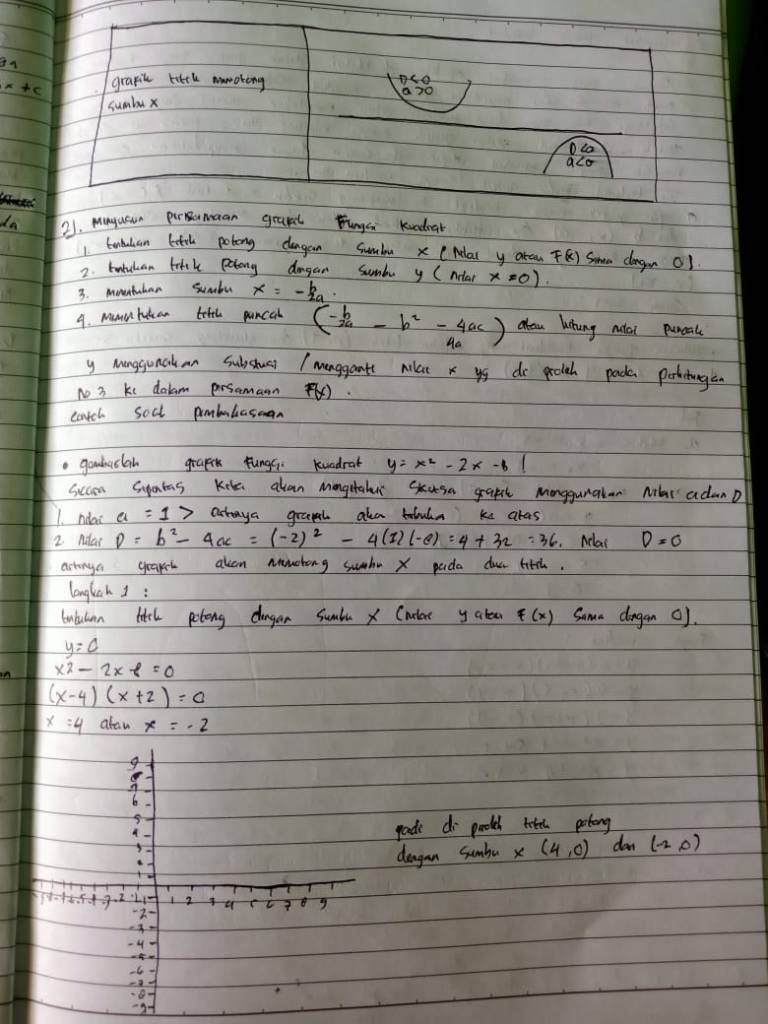 x + c
grafik titik memotong
sumbu x
D<0
a>0
D<0
a<0
2). Menyusun persamaan grafik Fungsi kuadrat
1. tentukan titik potong dengan sumbu x (Nilai y atau F(x) sama dengan 0).
2. tentukan titik potong dengan sumbu y (nilai x = 0).
3. menentukan sumbu x = -b/2a.
4. Menentukan titik puncak (-b/2a - b² - 4ac/4a) atau hitung nilai puncak
y menggunakan substusi / mengganti nilai x yg di proleh pada perhitungan
No 3 ke dalam persamaan F(x).
contoh soal pembahasaan
• gambarlah grafik fungsi kuadrat y = x² - 2x -8 !
secara kita akan mengetahui grafik menggunakan nilai a dan D
1. nilai a = 1 > artinya grafik aka ke atas
2 nilai D = b² - 4ac = (-2)² - 4(1)(-8) = 4 + 32 = 36. nilai D = 0
artinya grafik akan memotong sumbu x pada dua titik.
langkah 1 :
tentukan titik potong dengan sumbu x (Nilai y atau F(x) sama dengan 0).
y = 0
x2 - 2x -8 = 0
(x-4) (x+2) = 0
x = 4 atau x = -2
9
8
7
6
5
4
3
2
1
-2 -1 1 2 3 4 5 6 7 8 9
-2
-3
-4
-5
-6
-7
-8
-9
jadi di proleh titik potong
dengan sumbu x (4,0) dan (-2,0)